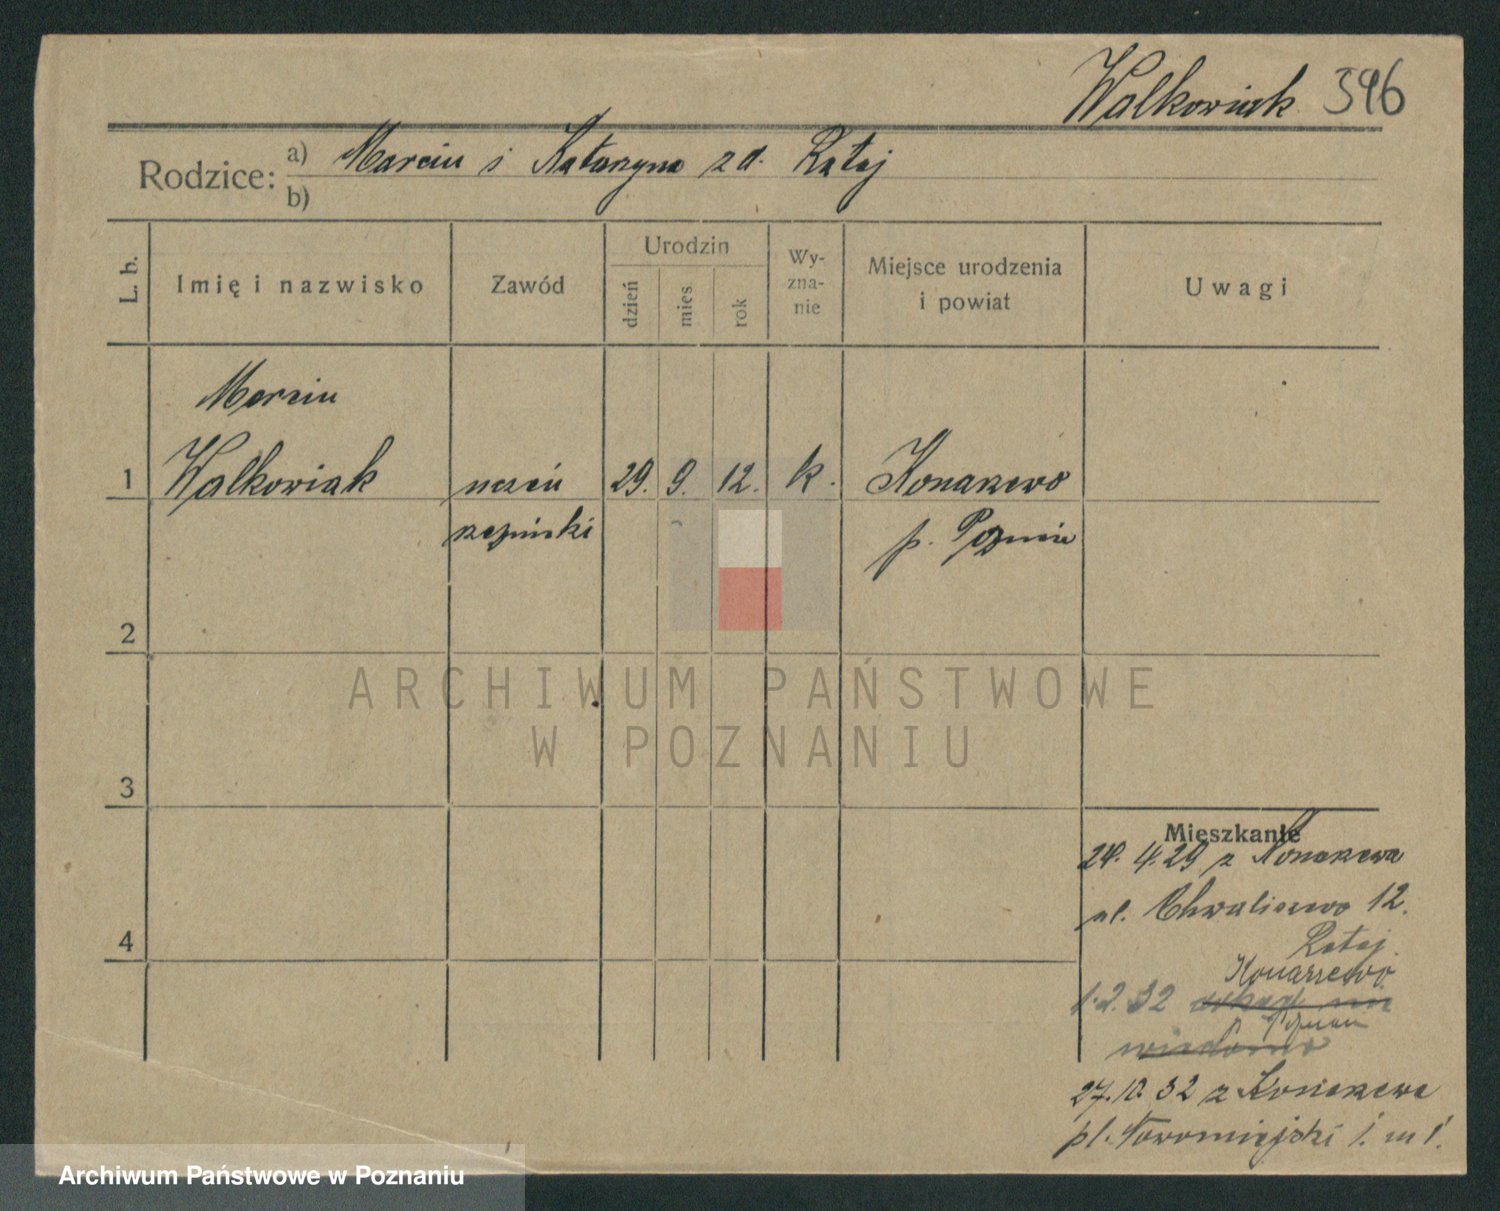 Walkowiak 596
Rodzice: a) Marcin i Katarzyna z d. Rataj
b)
L. b.
Imię i nazwisko
Zawód
Urodzin
dzień
mies
rok
Wy-
zna-
nie
Miejsce urodzenia
i powiat
Uwagi
Marcin
1 Walkowiak uczeń 29. 9. 12. k. Konarzewo
rzeźnicki p. Poznań
2
ARCHIWUM PAŃSTWOWE
W POZNANIU
3
Mieszkanie
24. 4. 29 z Konarzewa
ul. Chwaliszewo 12.
Rataj
4
Konarzewo
1. 2. 32
Poznań
wiadomo
27. 10. 32 z Konarzewa
pl. Nowomiejski
Archiwum Państwowe w Poznaniu